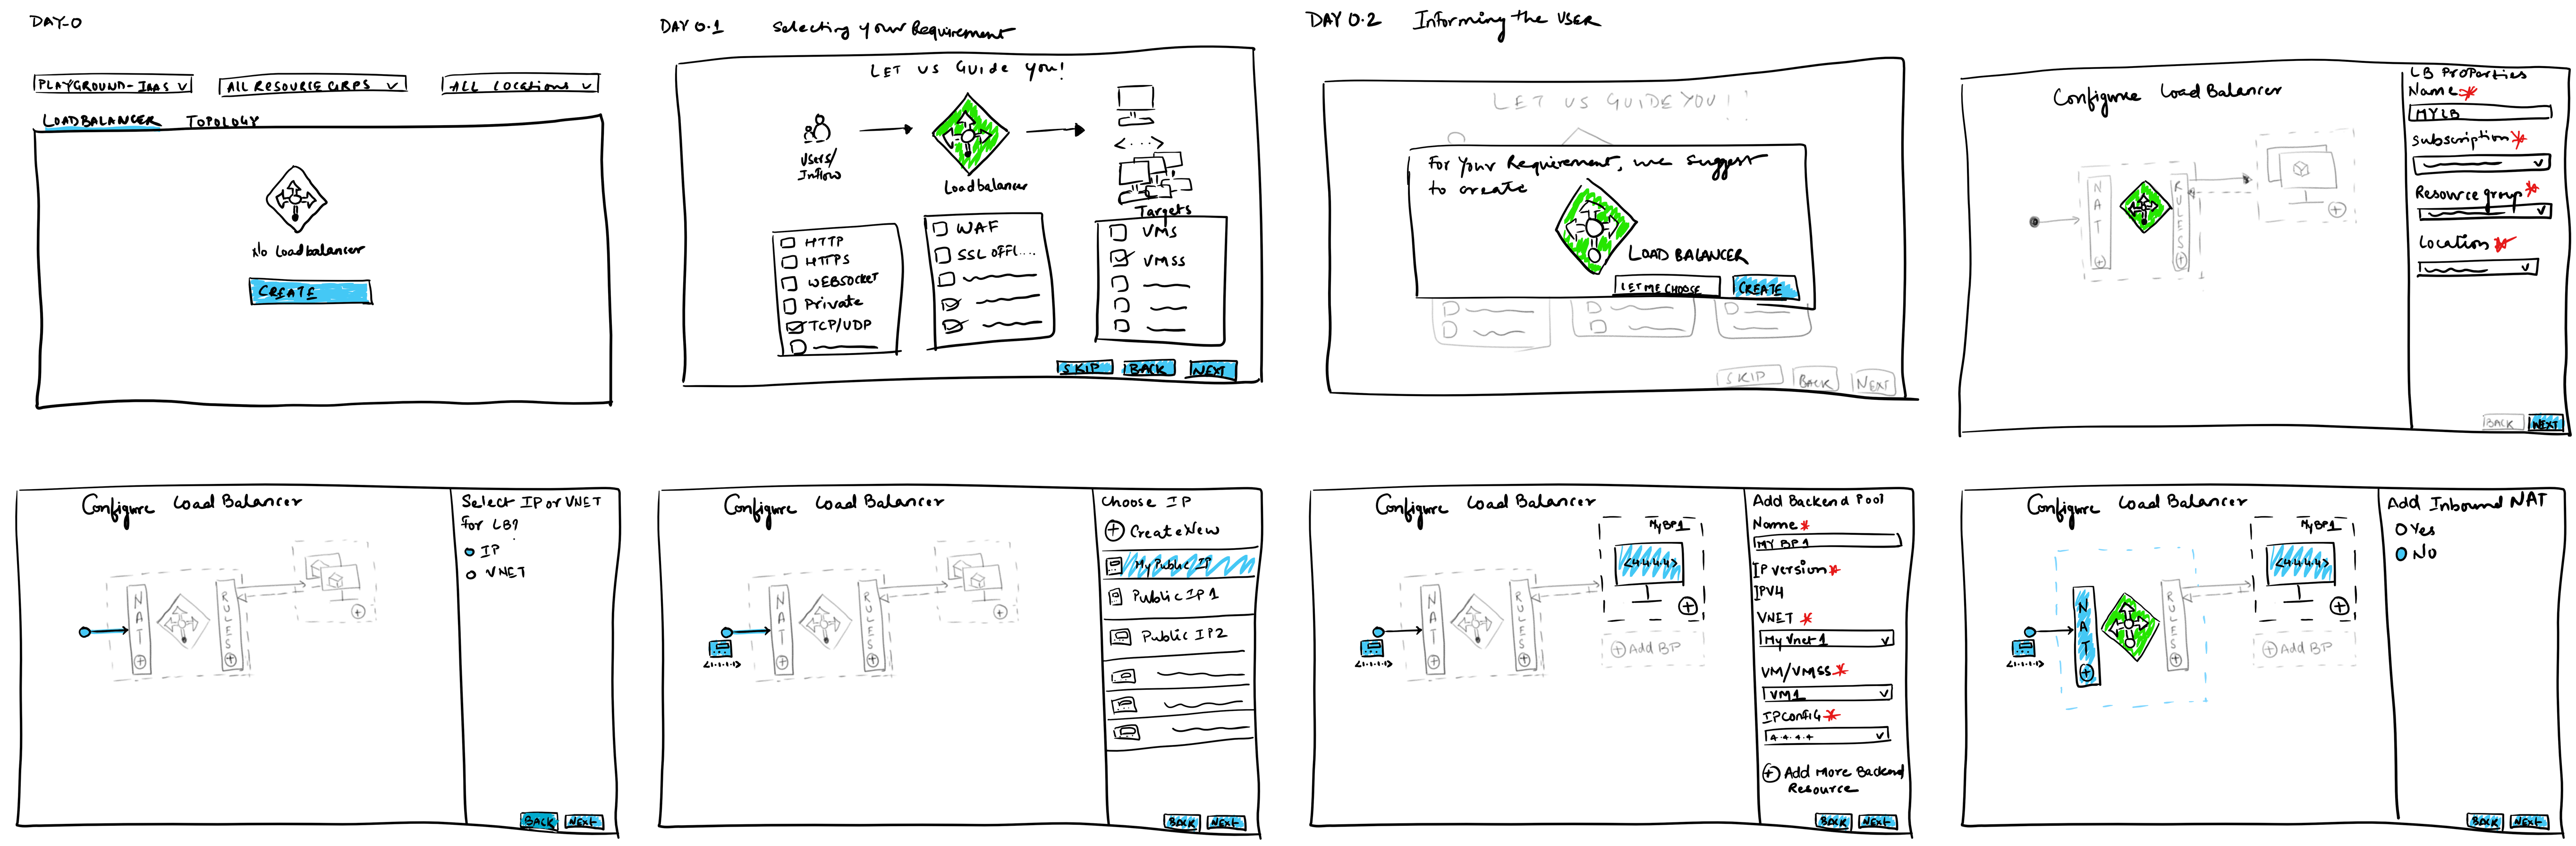 DAY-0
PLAYGROUND-IAAS
ALL RESOURCE GRPS
ALL Locations
LOADBALANCER
TOPOLOGY
No Loadbalancer
CREATE
DAY 0.1 Selecting your Requirement
LET US GUIDE YOU!
Users/
Inflow
Loadbalancer
<....>
Targets
HTTP
HTTPS
WEBSOCKET
Private
TCP/UDP
WAF
SSL OFFL....
VMS
VMSS
SKIP
BACK
NEXT
DAY 0.2 Informing the USER
LET US GUIDE YOU!!
For Your Requirement, we suggest
to create
LOAD BALANCER
LET ME CHOOSE
CREATE
SKIP
BACK
NEXT
Configure Load Balancer
NAT
RULES
LB Properties
Name*
MYLB
Subscription*
Resource group*
Location*
BACK
NEXT
Configure Load Balancer
NAT
RULES
Select IP or VNET
For LB?
IP
VNET
BACK
NEXT
Configure Load Balancer
<1.1.1.1>
NAT
RULES
Choose IP
Create New
My Public IP
Public IP 1
Public IP2
BACK
NEXT
Configure Load Balancer
<1.1.1.1>
NAT
RULES
MyBP1
<4.4.4.4>
Add BP
Add Backend Pool
Name*
MY BP1
IP version*
IPV4
VNET *
My Vnet 1
VM/VMSS*
VM1
IPConfig*
4.4.4.4
Add More Backend
Resource
BACK
NEXT
Configure Load Balancer
<1.1.1.1>
NAT
RULES
MyBP1
<4.4.4.4>
Add BP
Add Inbound NAT
Yes
No
BACK
NEXT